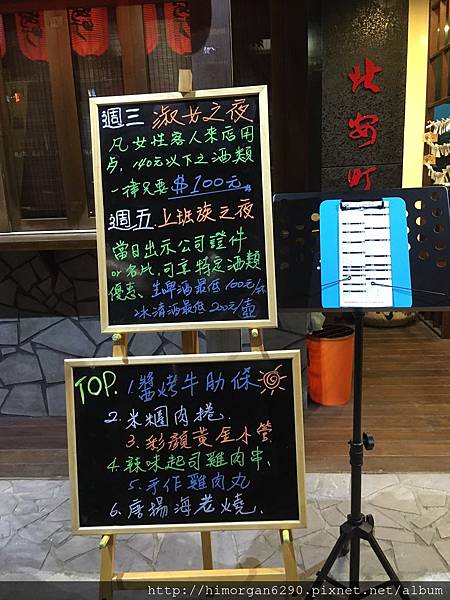 週三 淑女之夜
凡女性客人來店用
点,140元以下之酒類
一律只要$100元
週五 上班族之夜
當日出示公司證件
or名片,可享特定酒類
優惠、生啤酒最低100元/杯
冰清酒最低200元/壺
北安町
TOP. 1.醬烤牛肋條
2.米糰肉捲.
3.彩顏黃金小管
4.辣味起司雞肉串、
5.手作雞肉丸
6.唐揚海老燒、
http://himorgan6290.pixnet.net/album